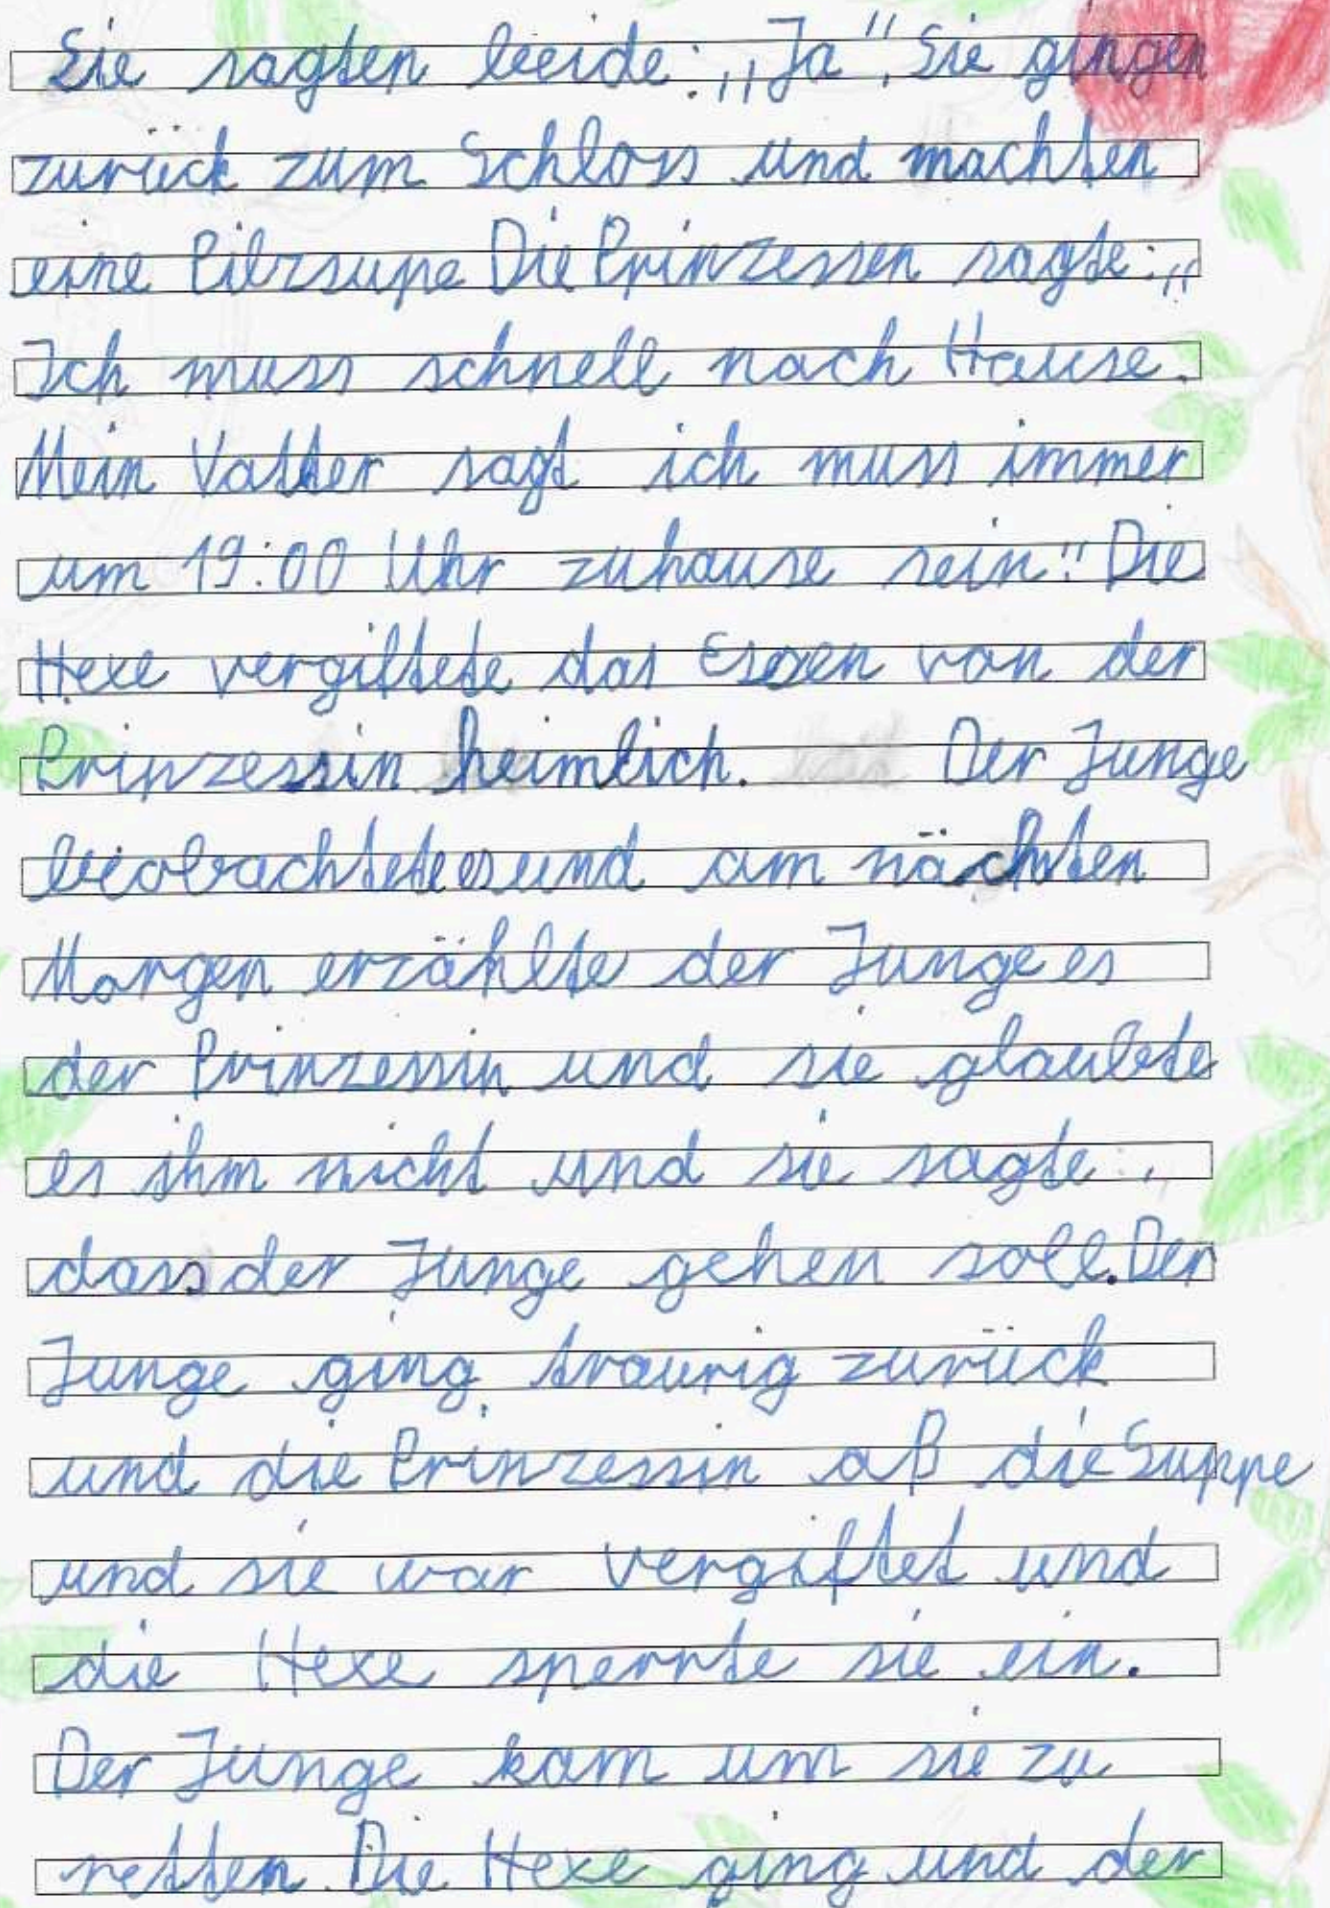 Sie sagten beide: „Ja". Sie gingen
zurück zum Schloss und machten
eine Pilzsupe Die Prinzessen sagte: „
Ich muss schnell nach Hause.
Mein Vatter sagt ich muss immer
um 19:00 Uhr zuhause sein." Die
Hexe vergiftete das Essen von der
Prinzessin heimlich. Der Junge
beobachtete es und am nächsten
Morgen erzählte der Junge es
der Prinzessin und sie glaubte
es ihm nicht und sie sagte
dass der Junge gehen soll. Der
Junge ging traurig zurück
und die Prinzessin aß die Suppe
und sie war vergiftet und
die Hexe sperrte sie ein.
Der Junge kam um sie zu
retten. Die Hexe ging und der